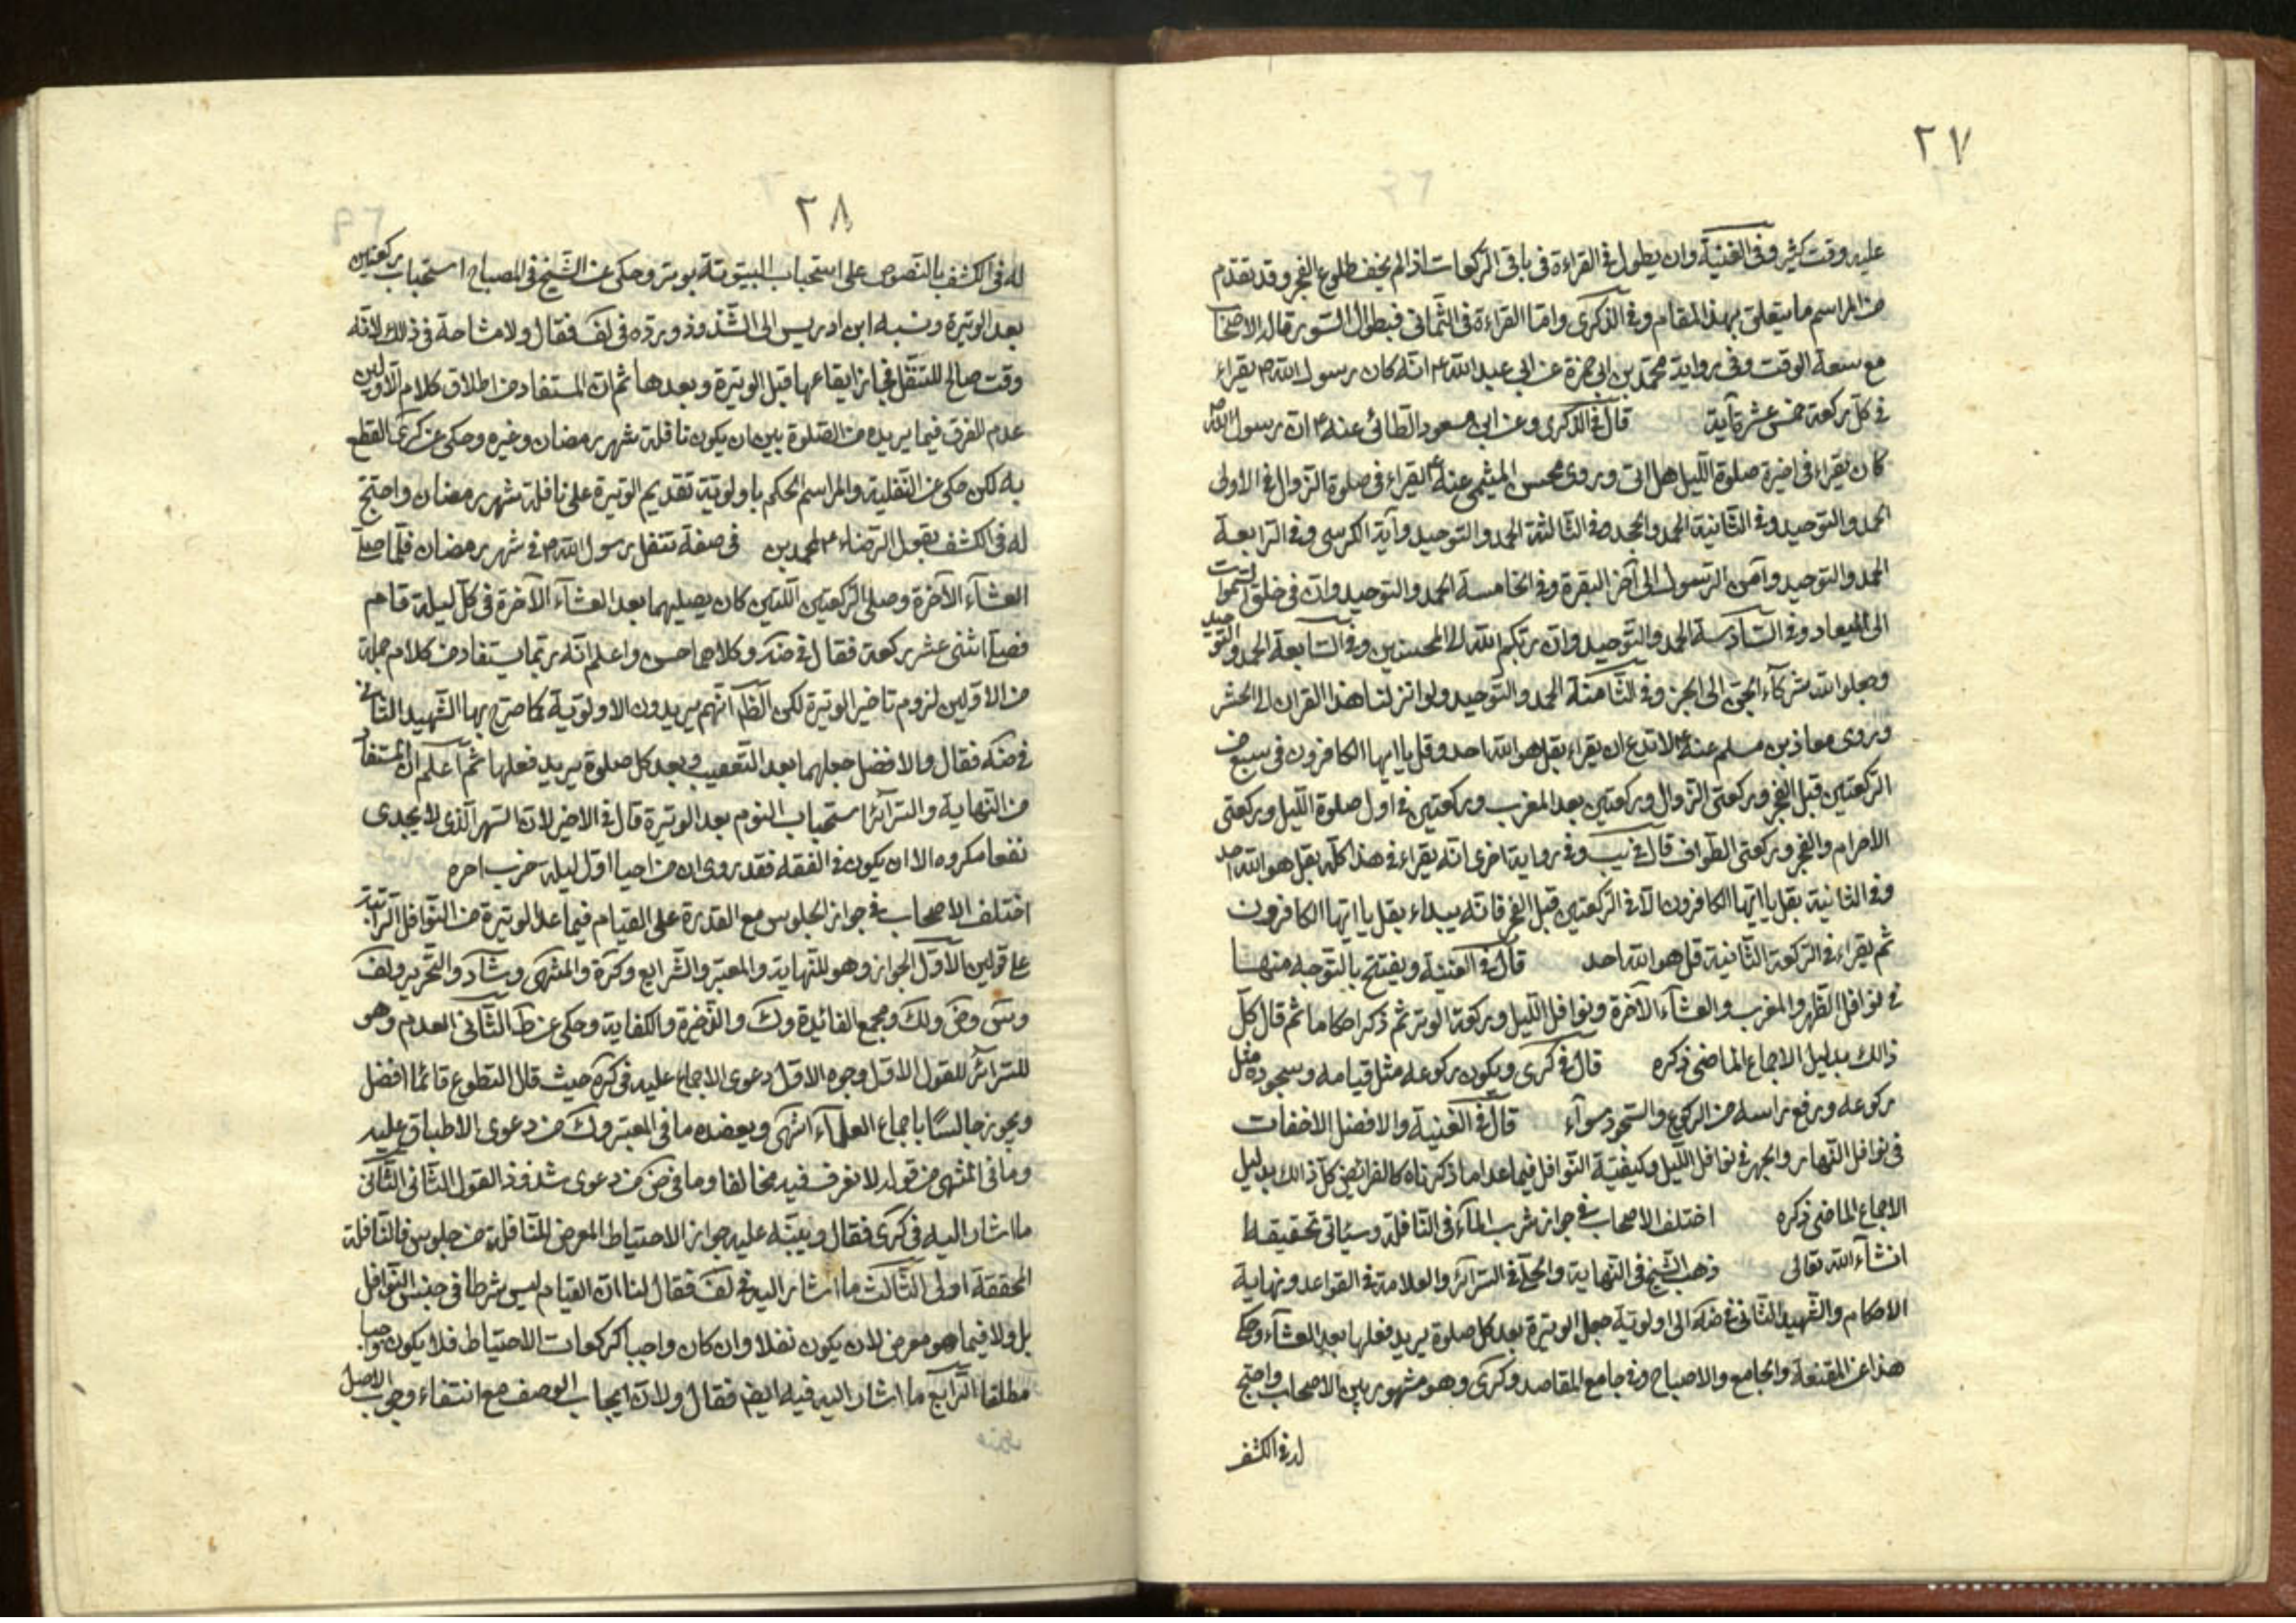 ٢٧
عليه وقت كثير وفى الغنية وان يطول فى القراءة فى باقى الركعات اذا لم يخف طلوع الفجر وقد تقدم
من المراسم ما يتعلق بهذا المقام وفى الذكرى واما القراءة فى الثمانى فبطوال السور قاله الاصحاب
مع سعة الوقت وفى رواية محمد بن ابى حمزة عن ابى عبد الله ع انه كان رسول الله ص يقراء
فى كل ركعة خمس عشرة آية قال فى الذكرى وعن ابى مسعود الطائى عنه ع ان رسول الله ص
كان يقراء فى اخيرة صلوة الليل هل اتى وروى محسن الميثمى عنه ع يقراء فى صلوة الزوال فى الاولى
الحمد والتوحيد وفى الثانية الحمد والجحد وفى الثالثة الحمد والتوحيد وآية الكرسى وفى الرابعة
الحمد والتوحيد وآمن الرسول الى آخر البقرة وفى الخامسة الحمد والتوحيد وان فى خلق السموات
الى الميعاد وفى السادسة الحمد والتوحيد وان ربكم الله الى المحسنين وفى السابعة الحمد والتوحيد
وجعلوا لله شركآء الجن الى الخبر وفى الثامنة الحمد والتوحيد ولو انزلنا هذا القران الى الحشر
وروى معاذ بن مسلم عنه ع لا تدع ان يقراء بقل هو الله احد وقل يا ايها الكافرون فى سبع فى
الركعتين قبل الفجر وركعتى الزوال وركعتين بعد المغرب وركعتين فى اول صلوة الليل وركعتى
الاحرام والفجر وركعتى الطواف قال فى يب وفى رواية اخرى انه يقراء فى هذا كله بقل هو الله احد
وفى الثانية بقل يا ايها الكافرون الا فى الركعتين قبل الفجر فانه يبداء بقل يا ايها الكافرون
ثم يقراء فى الركعة الثانية قل هو الله احد قال فى الغنية ويفتتح بالتوجه منها
فى نوافل الظهر والمغرب والعشآء الآخرة ونوافل الليل وركعة الوتر ثم ذكر احكاما ثم قال كل
ذالك بدليل الاجماع الماضى ذكره قال فى كرى ويكون ركوعه مثل قيامه وسجوده مثل
ركوعه ورفع راسه من الركوع والسجود سوآء قال فى الغنية والافضل الاخفات
فى نوافل النهار والجهر فى نوافل الليل وكيفية النوافل فيما عدا ما ذكرناه كالفرائض كل ذالك بدليل
الاجماع الماضى ذكره اختلف الاصحاب فى جواز شرب المآء فى النافلة وسيأتى تحقيقه
انشآء الله تعالى ذهب الشيخ فى النهاية والحلى فى السرآئر والعلامة فى القواعد ونهاية
الاحكام والشهيد الثانى فى ضه الى اولوية جعل الوتيرة بعد كل صلوة يريد فعلها بعد العشآء وحكى
هذا عن المقنعة والجامع والاصباح وفى جامع المقاصد وكرى وهو مشهور بين الاصحاب واحتج
له فى الكشف
٢٨
له فى الكشف بالنصوص على استحباب البيتوتة بوتر وحكى عن الشيخ فى المصباح استحباب ركعتين
بعد الوتيرة ونسبه ابن ادريس الى الشذوذ ورده فى لف فقال ولا مشاحة فى ذالك لانه
وقت صالح للتنفل فجاز ايقاعها قبل الوتيرة وبعدها ثم ان المستفاد من اطلاق كلام الاولين
عدم الفرق فيما يريده من الصلوة بين ان يكون نافلة شهر رمضان وغيره وحكى عن كرى القطع
به لكن حكى عن النقلية والمراسم الحكم باولوية تقديم الوتيرة على نافلة شهر رمضان واحتج
له فى الكشف بقول الرضاء ع لمحمد بن فى صفة تنفل رسول الله ص فى شهر رمضان فلما صلى
العشآء الآخرة وصلى الركعتين اللتين كان يصليهما بعد العشآء الآخرة فى كل ليلة قام
فصلى اثنى عشر ركعة فقال فى ضه وكلاهما حسن واعلم انه ربما يستفاد من كلام جملة
من الاولين لزوم تاخير الوتيرة لكن الظ انهم يريدون الاولوية كما صرح بها الشهيد الثانى
فى ضه فقال والافضل جعلهما بعد التعقيب وبعد كل صلوة يريد فعلها ثم اعلم ان المستفاد
من النهاية والسرآئر استحباب النوم بعد الوتيرة قال فى الاخير لان السهر الذى لا يجدى
نفعا مكروه الا ان يكون فى الفقه فقد روى ان من احيا اول ليلة خرب اخره
اختلف الاصحاب فى جواز الجلوس مع القدرة على القيام فيما عدا الوتيرة من النوافل الراتبة
على قولين الاول الجواز وهو للنهاية والمعتبر والشرايع وكرة والمنتهى وشآد والتحرير ولف
وس وض ولك ومجمع الفائدة وك والذخيرة والكفاية وحكى عن ط الثانى العدم وهو
للسرائر للقول الاول وجوه الاول دعوى الاجماع عليه فى كره حيث قال التطوع قائما افضل
ويجوز جالسًا باجماع العلمآء انتهى ويعضده ما فى المعتبر وك من دعوى الاطباق عليه
وما فى المنتهى من قوله لا نعرف فيه مخالفا وما فى ض من دعوى شذوذ القول الثانى الثانى
ما اشار اليه فى كرى فقال وينبه عليه جواز الاحتياط المعرض للنافلة من جلوس فالنافلة
المحققة اولى الثالث ما اشار اليه فى لف فقال لنا ان القيام ليس شرطا فى جنس النوافل
بل ولا فيما هو معرض لان يكون نفلا وان كان واجبا كركعات الاحتياط فلا يكون واجبا
مطلقا الرابع ما اشار اليه فيه ايضا فقال ولان ايجاب الوصف مع انتفاء وجوب الاصل